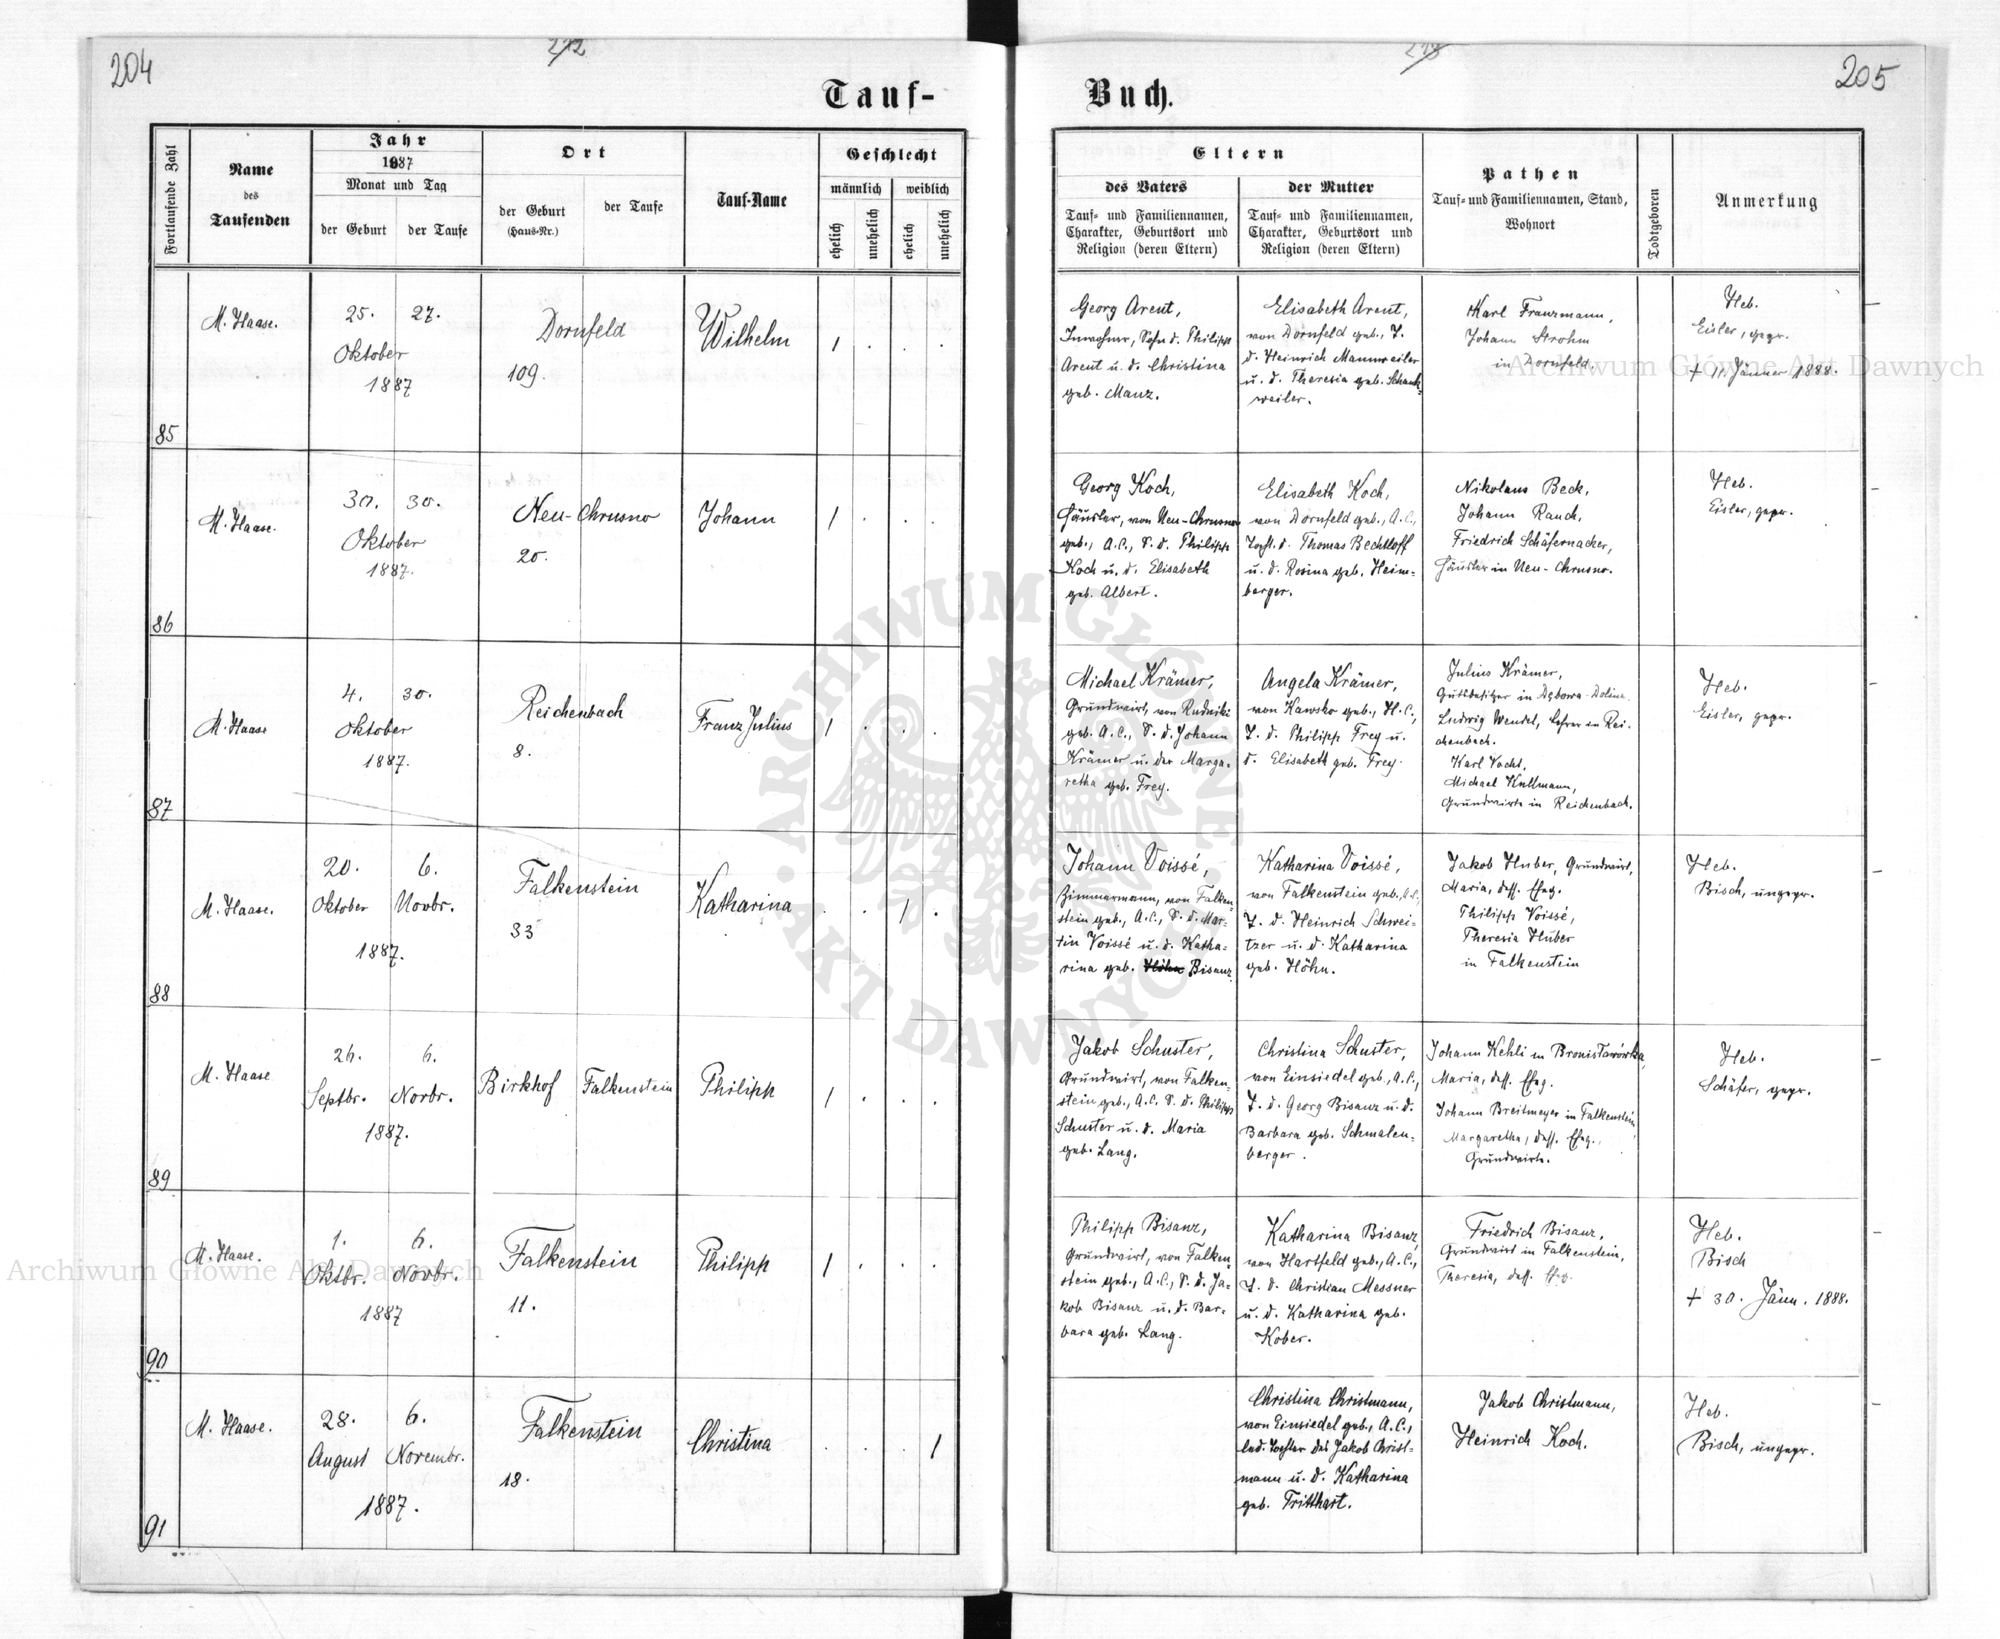 204
212
Tauf-
Fortlaufende Zahl
Name
des
Taufenden
Jahr
1887
Monat und Tag
der Geburt
der Taufe
Ort
der Geburt
(Haus-Nr.)
der Taufe
Tauf-Name
Geschlecht
männlich
weiblich
ehelich
unehelich
ehelich
unehelich
85
M. Haase.
25. 27.
Oktober
1887
Dornfeld
109.
Wilhelm
1 . . .
86
M. Haase.
30. 30.
Oktober
1887.
Neu-Chrusno
20.
Johann
1 . . .
87
M. Haase
4. 30.
Oktober
1887.
Reichenbach
8.
Franz Julius
1 . . .
88
M. Haase.
20. 6.
Oktober Novbr.
1887.
Falkenstein
33
Katharina
. . 1 .
89
M. Haase
26. 6.
Septbr. Novbr.
1887.
Birkhof
Falkenstein
Philipp
1 . . .
90
M. Haase.
1. 6.
Oktbr. Novbr.
1887
Falkenstein
11.
Philipp
1 . . .
91
M. Haase.
28. 6.
August Novembr.
1887.
Falkenstein
18.
Christina
. . . 1
205
213
Buch.
Eltern
des Vaters
Tauf- und Familiennamen,
Charakter, Geburtsort und
Religion (deren Eltern)
der Mutter
Tauf- und Familiennamen,
Charakter, Geburtsort und
Religion (deren Eltern)
Pathen
Tauf- und Familiennamen, Stand,
Wohnort
Todtgeboren
Anmerkung
Georg Arent,
Inwohner, Sohn d. Philipp
Arent u. d. Christina
geb. Manz.
Elisabeth Arent,
von Dornfeld geb., T.
d. Heinrich Mannweiler
u. d. Theresia geb. Schank-
weiler.
Karl Franzmann,
Johann Strohm
in Dornfeld.
Heb.
Eisler, gepr.
† 11. Jänner 1888.
Georg Koch,
Häusler, von Neu-Chrusno
geb., A.C., S. d. Philipp
Koch u. d. Elisabeth
geb. Albert.
Elisabeth Koch,
von Dornfeld geb., A.C.,
Tocht. d. Thomas Bechtloff
u. d. Rosina geb. Heim-
berger.
Nikolaus Beck,
Johann Rauch,
Friedrich Schäfernacker,
Häusler in Neu-Chrusno.
Heb.
Eisler, gepr.
Michael Krämer,
Grundwirt, von Rudniki
geb. A.C., S. d. Johann
Krämer u. der Marga-
retha geb. Frey.
Angela Krämer,
von Kawsko geb., H.C.,
T. d. Philipp Frey u.
d. Elisabeth geb. Frey.
Julius Krämer,
Gutsbesitzer in Dębowa-Dolina.
Ludwig Wendel, Lehrer in Rei-
chenbach.
Karl Vocht,
Michael Kullmann,
Grundwirte in Reichenbach.
Heb.
Eisler, gepr.
Johann Voissé,
Zimmermann, von Falken-
stein geb., A.C., S. d. Mar-
tin Voissé u. d. Katha-
rina geb. Höhn Bisanz.
Katharina Voissé,
von Falkenstein geb., A.C.,
T. d. Heinrich Schwei-
tzer u. d. Katharina
geb. Höhn.
Jakob Huber, Grundwirt,
Maria, dess. Eheg.
Philipp Voissé,
Theresia Huber
in Falkenstein
Heb.
Bisch, ungepr.
Jakob Schuster,
Grundwirt, von Falken-
stein geb., A.C. S. d. Philipp
Schuster u. d. Maria
geb. Lang.
Christina Schuster,
von Einsiedel geb., A.C.,
T. d. Georg Bisanz u. d.
Barbara geb. Schmalen-
berger.
Johann Kehli in Bronisławówka,
Maria, dess. Eheg.
Johann Breitmeyer in Falkenstein,
Margaretha, dess. Eheg.,
Grundwirte.
Heb.
Schäfer, gepr.
Philipp Bisanz,
Grundwirt, von Falken-
stein geb., A.C., S. d. Ja-
kob Bisanz u. d. Bar-
bara geb. Lang.
Katharina Bisanz,
von Hartfeld geb., A.C.,
T. d. Christian Messner
u. d. Katharina geb.
Kober.
Friedrich Bisanz,
Grundwirt in Falkenstein,
Theresia, dess. Eheg.
Heb.
Bisch
† 30. Jänn. 1888.
Christina Christmann,
von Einsiedel geb., A.C.,
led. Tochter des Jakob Christ-
mann u. d. Katharina
geb. Tritthart.
Jakob Christmann,
Heinrich Koch.
Heb.
Bisch, ungepr.
Archiwum Główne Akt Dawnych
Archiwum Główne Akt Dawnych
ARCHIWUM GŁÓWNE AKT DAWNYCH